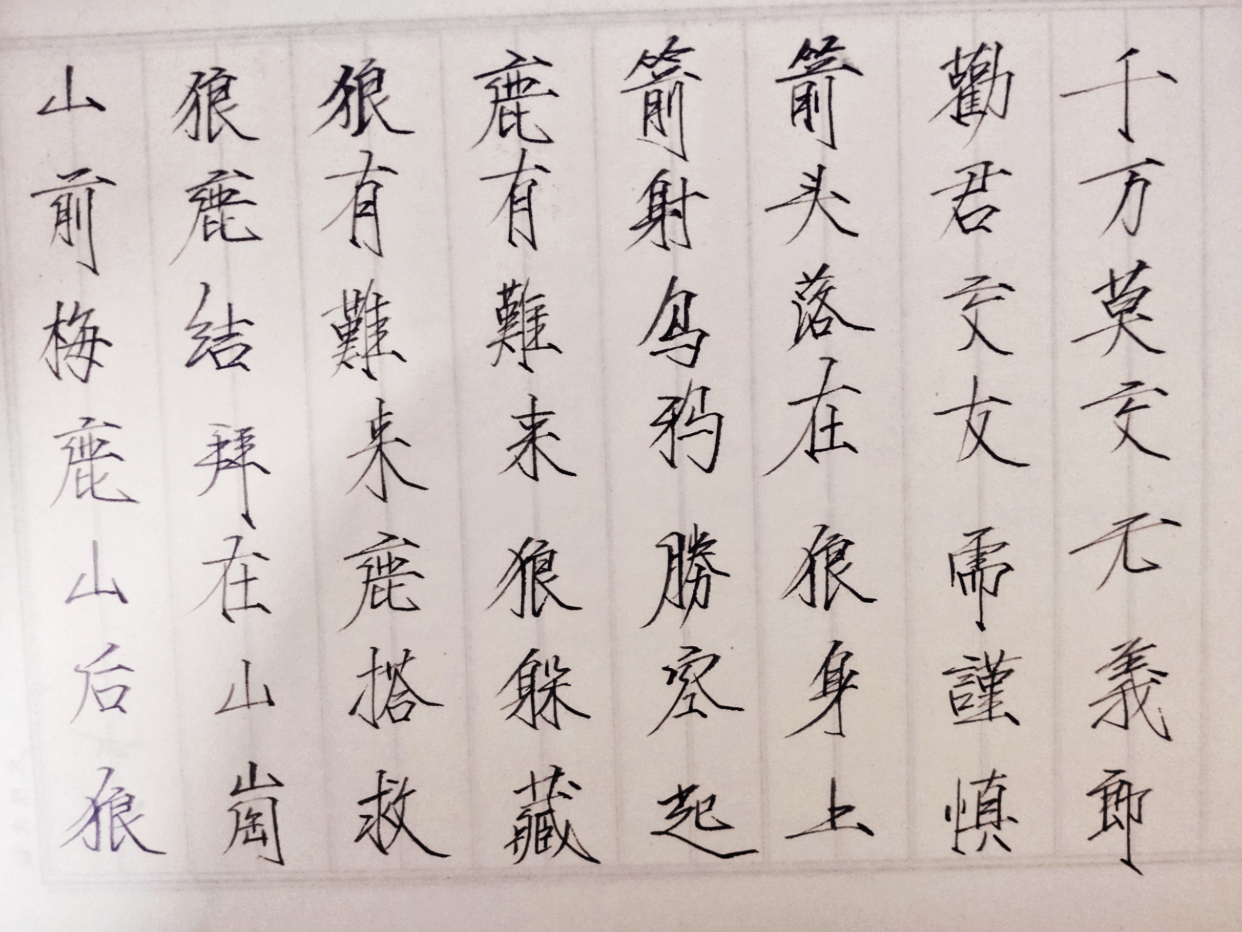 山前梅鹿山后狼
狼鹿结拜在山崗
狼有難来鹿搭救
鹿有難来狼躲藏
箭射乌鸦勝空起
箭头落在狼身上
勸君交友需謹慎
千万莫交无義郎